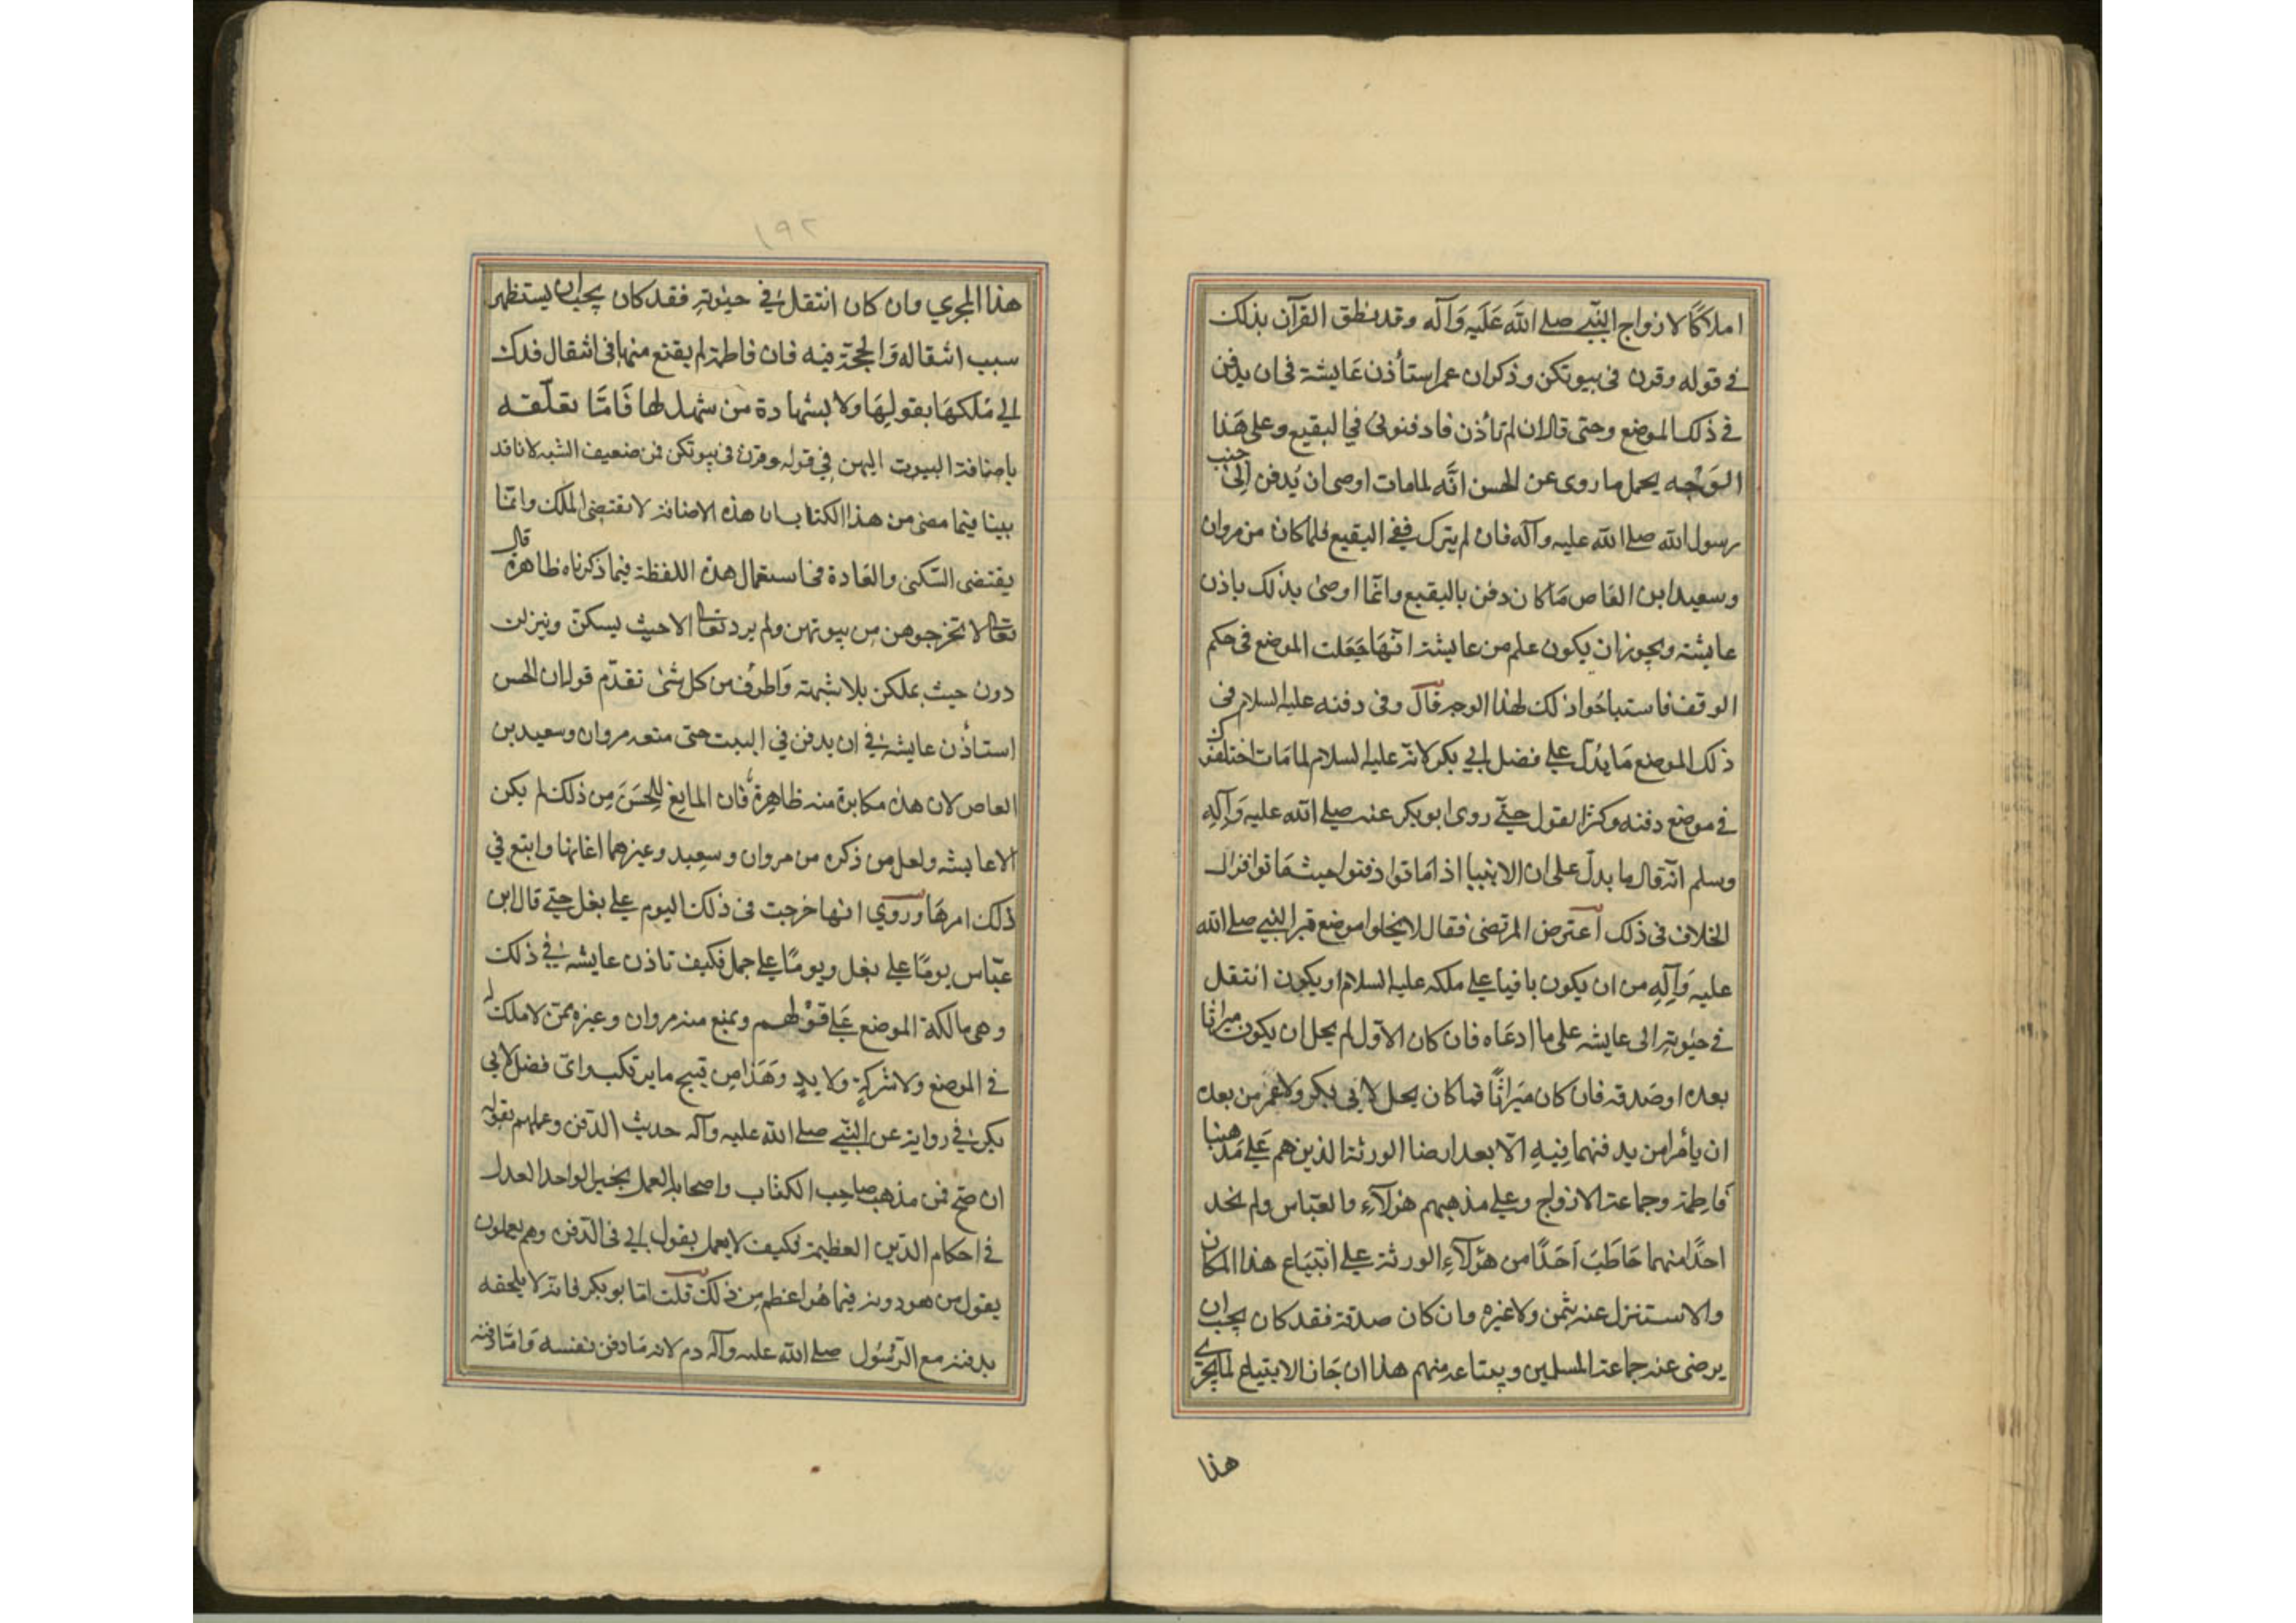 املاكًا لازواج النّبي صلے الله عَلَيه وَآله وقد نطق القرآن بذلك
في قوله وقرن فى بيوتكن وذكر ان عمر استأذن عَايشة فى ان يدفن
فى ذلك الموضع وحتى قال ان لم تأذن فادفنونى في البقيع وعلى هَذا
الوَجْه يحمل ما روى عن الحسن انَّه لما مات اوصى ان يُدفن إلىٰ جنب
رسول الله صلے الله عليه وآله فان لم يترك ففى البقيع فلما كان من مروان
وسعيد ابن العَاص مَا كان دفن بالبقيع وانّما اوصىٰ بذلك باذن
عايشة ويجوز ان يكون علم من عايشة انّهَا جَعَلت الموضع فى حكم
الوقف فاستباحُوا ذلك لهذا الوجه قال وفى دفنه عليه السلام فى
ذلك الموضع مَا يُدلّ علے فضل ابي بكر لانّه عليه السلام لما مَات اختلفوا
في موضع دفنه وكثر القول حتّے روى ابوبكر عنه صلے الله عليه وَآلِه
وسلم انّه قال ما يدلّ على ان الانبيا اذا مَاتوا دفنوا حيث مَاتوا فزال
الخلاف فى ذلك اعترض المرتضى فقال لا يخلوا موضع قبر النبي صلے الله
عليه وَآلِهِ من ان يكون باقيا علے ملكه عليه السلام او يكون انتقل
في حيٰوته الى عايشه على ما ادعَاه فان كان الاوّل لم يحل ان يكون ميراثا
بعده او صَدقه فان كان ميَراثًا فما كان يحل لابى بكر ولا عمر من بعده
ان يأمرا من يدفنهما فِيهِ الّا بعد ارضا الورثة الذين هم عَلے مَذهبنا
فاطمة وجماعة الازواج وعلے مذهبهم هؤلآءِ والعبّاس ولم نجد
احدًا منهما خَاطَبَ اَحَدًا من هؤلآءِ الورثة علے ابتيَاع هذا المكان
والاستنزل عنه بثمن ولا غيره وان كان صدقة فقد كان يجب ان
يرضى عنه جماعة المسلمين ويبتاعه منهم هذا ان جَاز الابتياع لما يجرے
هذا
١٩٢
هذا المجري وان كان انتقل في حيٰوته فقد كان يجب ان يستظهر
سبب انتقاله وَالحجّة فيه فان فاطمة لم يقنع منها في انتقال فدك
الي مُلكهَا بقولِهَا ولا بشهادة من شهد لها فَامّا تعلّقه
باضافة البيوت اليهن في قوله وقرن فى بيوتكن فمن ضعيف الشبه لانا قد
بينا فيما مضى من هذا الكتاب ان هذه الاضافة لا تقتضى الملك وانّما
يقتضى السّكنى والعَادة فى استعمال هذه اللفظة فيما ذكرناه ظاهرة قال
تعالى لا تخرجوهن من بيوتهن ولم يرد تعالى الا حيث يسكنّ وينزلن
دون حيث يملكن بلا شبهة وَاطرف من كل شئ تقدّم قوله ان الحسن
استأذن عايشة في ان يدفن في البيت حتى منعه مروان وسعيد بن
العاص لان هذه مكابرة منه ظاهرة فان المانِع لِلحَسَن مِن ذلك لم يكن
الا عايشه ولعل من ذكره من مروان وسعيد وغيرهما اعانها واتبع في
ذلك امرهَا وروي انها خرجت فى ذلك اليوم علے بغل حتّے قال ابن
عبّاس يومًا علے بغل ويومًا علے جمل فكيف تاذن عايشه في ذلك
وهى مالكة الموضع عَلے قوْلهم ويمنع منه مروان وغيره ممّن لا ملك له
في الموضع ولا شركةٍ ولا يدٍ وَهَذا مِن قبيح ما يرتكب واىّ فضل لابي
بكر في رواية عن النّبي صلے الله عليه وآله حديث الدّفن وعملهم بقوله
ان صَحّ فمن مذهب صاحِب الكتاب واصحابه العمل بخبر الواحد العدل
في احكام الدّين العظيمة فكيف لا يعمل بقول ابي فى الدّفن وهم يعملون
بقول من هو دونه فيما هُو اعظم مِن ذلك قلت امّا ابو بكر فانّه لا يلحقه
بدفنه مع الرّسُول صلے الله عليه وآله ذم لانه مَا دفن نفسه وَامّا دفنه